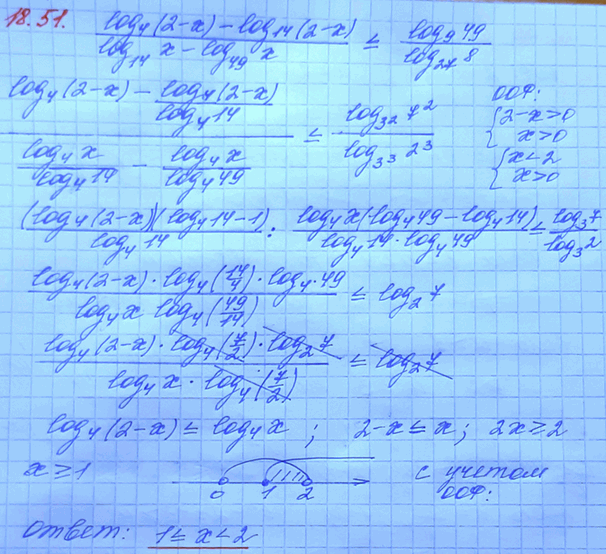 18.51. (log₄(2-x) - log₁₄(2-x))/(log₁₄x - log₄₉x) ≤ (log₉49)/(log₂₇8)
(log₄(2-x) - (log₄(2-x))/(log₄14))/((log₄x)/(log₄14) - (log₄x)/(log₄49)) ≤ (log₃²7²)/(log₃³2³) ООФ: { 2-x>0 x>0 { x<2 x>0
((log₄(2-x))(log₄14-1))/(log₄14) : (log₄x(log₄49-log₄14))/(log₄14·log₄49) ≤ (log₃7)/(log₃2)
(log₄(2-x)·log₄(14/4)·log₄·49)/(log₄x log₄(49/14)) ≤ log₂7
(log₄(2-x)·log₄(7/2)·log₂7)/(log₄x·log₄(7/2)) ≤ log₂7
log₄(2-x) ≤ log₄x ; 2-x≤x; 2x≥2
x≥1 0 1 2 с учетом ООФ:
Ответ: 1≤x<2